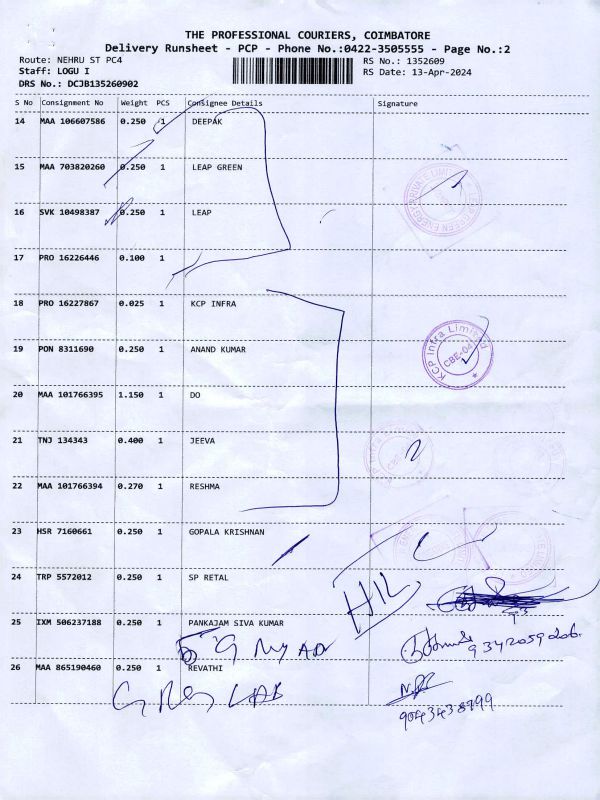 THE PROFESSIONAL COURIERS, COIMBATORE
Delivery Runsheet - PCP - Phone No.:0422-3505555 - Page No.:2
Route: NEHRU ST PC4
RS No.: 1352609
Staff: LOGU I
RS Date: 13-Apr-2024
DRS No.: DCJB135260902
S No Consignment No Weight PCS Consignee Details Signature
14 MAA 106607586 0.250 1 DEEPAK
15 MAA 703820260 0.250 1 LEAP GREEN
16 SVK 10498387 0.250 1 LEAP
17 PRO 16226446 0.100 1
18 PRO 16227867 0.025 1 KCP INFRA
KCP Infra Limited
CBE-04
19 PON 8311690 0.250 1 ANAND KUMAR
20 MAA 101766395 1.150 1 DO
21 TNJ 134343 0.400 1 JEEVA
22 MAA 101766394 0.270 1 RESHMA
23 HSR 7160661 0.250 1 GOPALA KRISHNAN
24 TRP 5572012 0.250 1 SP RETAL
25 IXM 506237188 0.250 1 PANKAJAM SIVA KUMAR
9342059206
26 MAA 865190460 0.250 1 REVATHI
LAB
9043438799